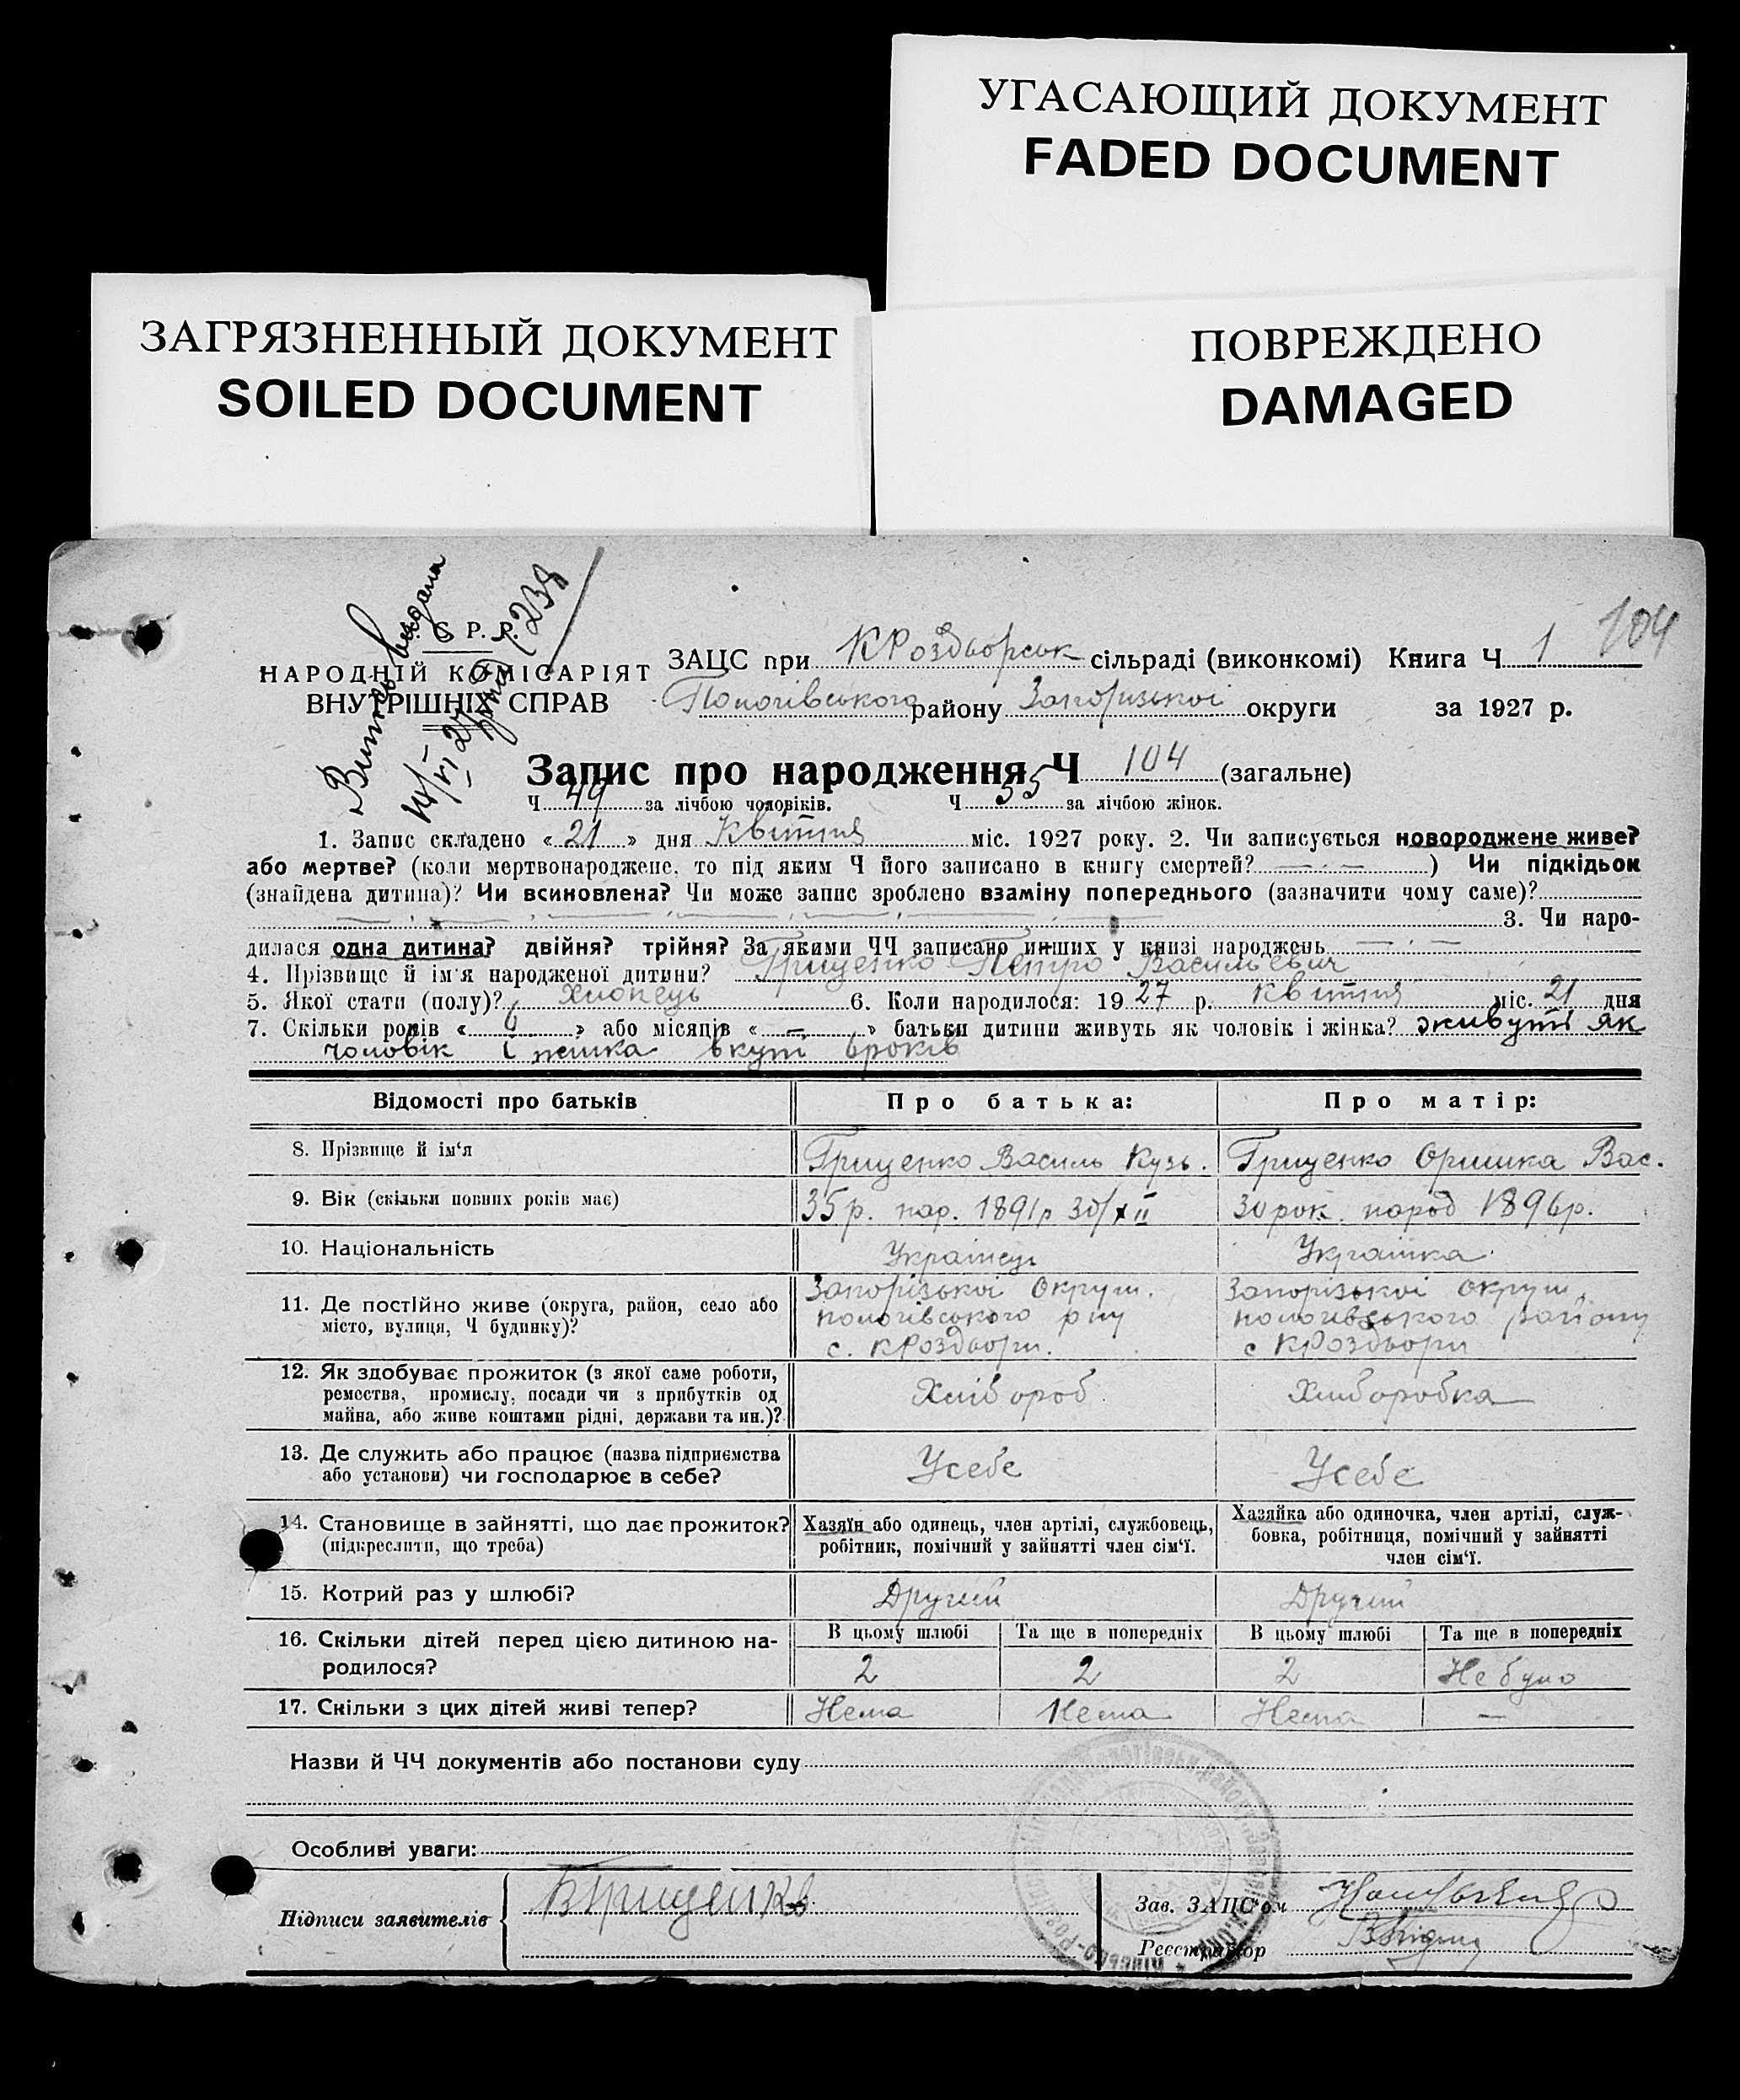 УГАСАЮЩИЙ ДОКУМЕНТ
FADED DOCUMENT
ЗАГРЯЗНЕННЫЙ ДОКУМЕНТ
SOILED DOCUMENT
ПОВРЕЖДЕНО
DAMAGED
104
Витись видана
С. Р. Р.
НАРОДНІЙ КОМІСАРІЯТ
ВНУТРІШНІХ СПРАВ
ЗАЦС при КРоздворськ сільраді (виконкомі) Книга Ч 1
Пологівського району Запорізької округи за 1927 р.
Запис про народження Ч 104 (загальне)
Ч 49 за лічбою чоловіків. Ч 55 за лічбою жінок.
1. Запис складено « 21 » дня Квітня міс. 1927 року. 2. Чи записується новороджене живе?
або мертве? (коли мертвонароджене, то під яким Ч його записано в книгу смертей? — . — ) Чи підкідьок
(знайдена дитина)? Чи всиновлена? Чи може запис зроблено взаміну попереднього (зазначити чому саме)?
3. Чи наро-
дилася одна дитина? двійня? трійня? За якими ЧЧ записано инших у книзі народжень — . —
4. Прізвище й ім'я народженої дитини? Грищенко Петро Васильевич
5. Якої стати (полу)? Хлопець 6. Коли народилося: 1927 р. Квітня міс. 21 дня
7. Скільки років « 6 » або місяців « — » батьки дитини живуть як чоловік і жінка? живуть як
чоловік і жинка вкупі 6 років
Відомості про батьків Про батька: Про матір:
8. Прізвище й ім'я Грищенко Василь Кузь. Грищенко Оришка Вас.
9. Вік (скільки повних років має) 35 р. нар. 1891 р 30/XII 30 рок. народ 1896 р.
10. Національність Українець Українка
11. Де постійно живе (округа, район, село або Запорізької Округи. Запорізької округи,
місто, вулиця, Ч будинку)? пологівського р ну пологівського району
с. КРоздори. с КРоздори
12. Як здобуває прожиток (з якої саме роботи,
ремества, промислу, посади чи з прибутків од Хлібороб Хліборобка
майна, або живе коштами рідні, держави та ин.)?
13. Де служить або працює (назва підприємства
або установи) чи господарює в себе? Усебе Усебе
14. Становище в зайнятті, що дає прожиток? Хазяїн або одинець, член артілі, службовець, Хазяйка або одиночка, член артілі, служ-
(підкреслити, що треба) робітник, помічний у зайнятті член сім'ї. бовка, робітниця, помічний у зайнятті
член сім'ї.
15. Котрий раз у шлюбі? Другий Другий
16. Скільки дітей перед цією дитиною на- В цьому шлюбі Та ще в попередніх В цьому шлюбі Та ще в попередніх
родилося? 2 2 2 Не було
17. Скільки з цих дітей живі тепер? Нема Нема Нема —
Назви й ЧЧ документів або постанови суду
Особливі уваги:
Підписи заявителів ВГрищенко Зав. ЗАЦС'ом
Реєстратор